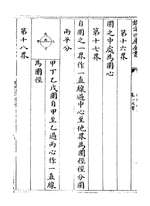 欽定四庫全書
第十六界
圜之中處為圜心
第十七界
自圜之一界作一直線過中心至他界為圜徑徑分圜
兩平分
甲丁乙戊圜自甲至乙過丙心作一直線
為圜徑
第十八界